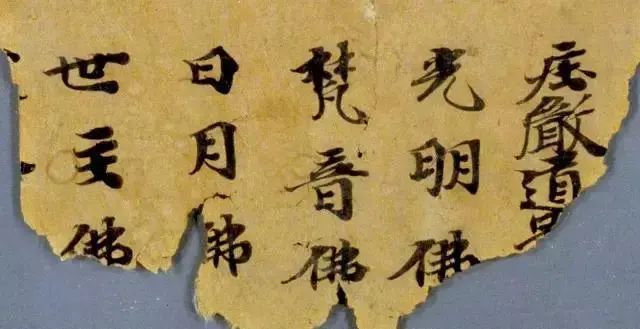 庄嚴道
光明佛
梵音佛
日月佛
世主佛